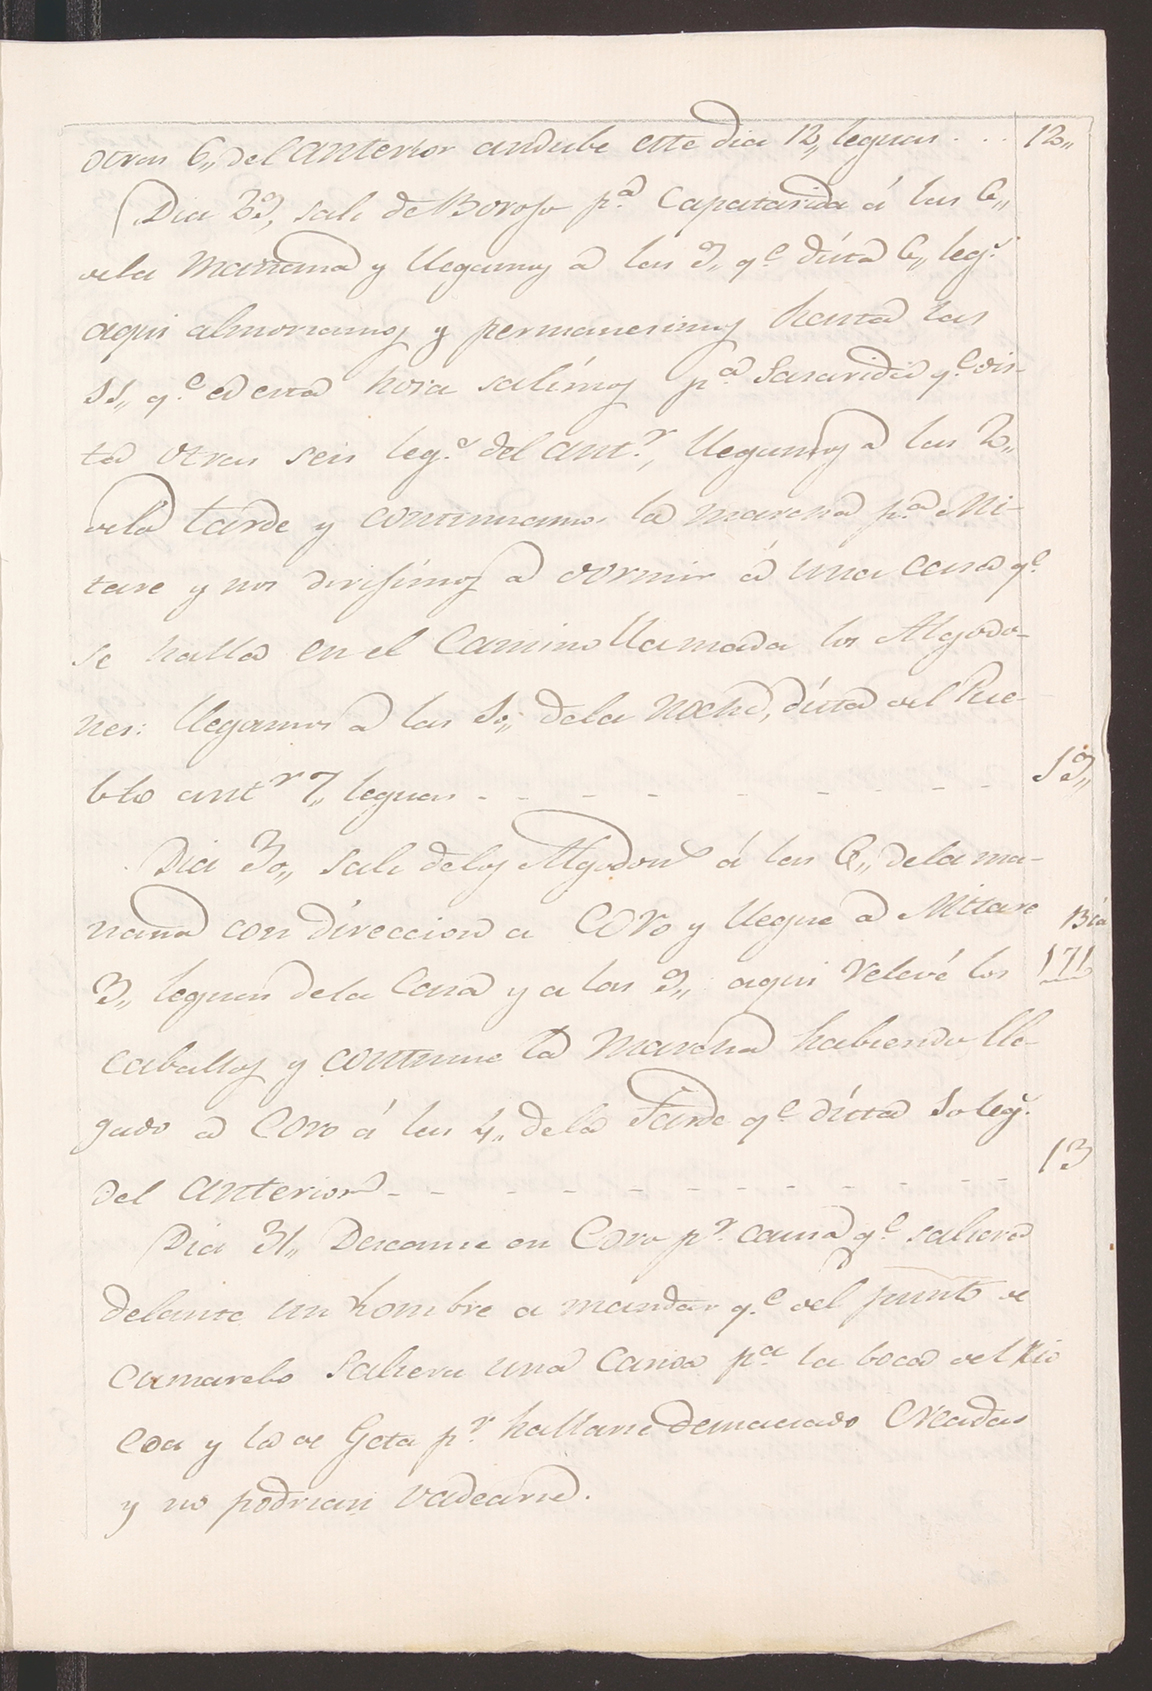 otras 6,, del anterior andube este dia 12,, leguas - - - 12,,
Dia 29,, sali de Borojo pª Capatarida á las 6,,
dela Mañana y llegamos a las 9,, q.e dista 6,, leg.s
aqui almorzamos y permanesimos hasta las
11,, q.e a esta hora salímos pª Sasarida q.e dis-
ta otras seis leg.s del ant.r, llegamos a las 2,,
dela tarde y continuamos la marcha pª Mi-
tare y nos dirijímos a dormir á una casa q.e
se halla en el Camino llamada los Algodo-
nes: llegamos a las 10,, dela Noche, dista del Pue-
blo ant.r 7,, leguas - - - - - - - - - - 19,,
Dia 30,, sali delos Algodon.s á las 6,, dela ma-
ñana con direccion a Coro y llegue a Mitare
3,, leguas dela Casa y a las 9,, aqui relevé los 171
caballos y continue la Marcha habiendo lle-
gado a Coro á las 4,, dela Tarde q.e dista 10 leg.s
del anterior - - - - - - - - - - - 13
Dia 31,, Descanse en Coro p.r causa q.e saliera
delante un hombre a mandar q.e del punto de
Camarebo saliera una Canoa pª la boca del Rio
Coa y la de Geta p.r hallarse demaciado Creadas
y no podrian vadearse.